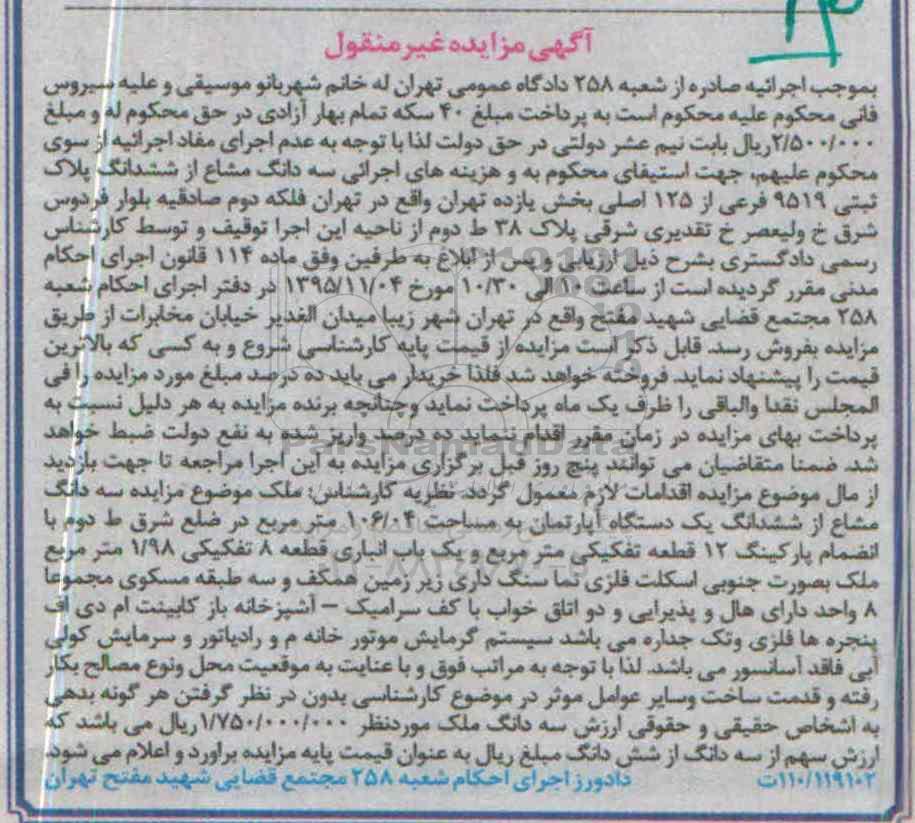 آگهی مزایده غیر منقول
بموجب اجرائیه صادره از شعبه ۲۵۸ دادگاه عمومی تهران له خانم شهربانو موسیقی و علیه سیروس
فانی محکوم علیه محکوم است به پرداخت مبلغ ۴۰ سکه تمام بهار آزادی در حق محکوم له و مبلغ
۲/۵۰۰/۰۰۰ریال بابت نیم عشر دولتی در حق دولت لذا با توجه به عدم اجرای مفاد اجرائیه از سوی
محکوم علیهم، جهت استیفای محکوم به و هزینه های اجرائی سه دانگ مشاع از ششدانگ پلاک
ثبتی ۹۵۱۹ فرعی از ۱۲۵ اصلی بخش یازده تهران واقع در تهران فلکه دوم صادقیه بلوار فردوس
شرق خ ولیعصر خ تقدیری شرقی پلاک ۳۸ ط دوم از ناحیه این اجرا توقیف و توسط کارشناس
رسمی دادگستری بشرح ذیل ارزیابی و پس از ابلاغ به طرفین وفق ماده ۱۱۴ قانون اجرای احکام
مدنی مقرر گردیده است از ساعت ۱۰ الی ۱۰/۳۰ مورخ ۱۳۹۵/۱۱/۰۴ در دفتر اجرای احکام شعبه
۲۵۸ مجتمع قضایی شهید مفتح واقع در تهران شهر زیبا میدان الغدیر خیابان مخابرات از طریق
مزایده بفروش رسد. قابل ذکر است مزایده از قیمت پایه کارشناسی شروع و به کسی که بالاترین
قیمت را پیشنهاد نماید. فروخته خواهد شد فلذا خریدار می باید ده درصد مبلغ مورد مزایده را فی
المجلس نقدا والباقی را ظرف یک ماه پرداخت نماید وچنانچه برنده مزایده به هر دلیل نسبت به
پرداخت بهای مزایده در زمان مقرر اقدام ننماید ده درصد واریز شده به نفع دولت ضبط خواهد
شد. ضمنا متقاضیان می توانند پنج روز قبل برگزاری مزایده به این اجرا مراجعه تا جهت بازدید
از مال موضوع مزایده اقدامات لازم معمول گردد. نظریه کارشناس: ملک موضوع مزایده سه دانگ
مشاع از ششدانگ یک دستگاه آپارتمان به مساحت ۱۰۶/۰۴ متر مربع در ضلع شرق ط دوم با
انضمام پارکینگ ۱۲ قطعه تفکیکی متر مربع و یک باب انباری قطعه ۸ تفکیکی ۱/۹۸ متر مربع
ملک بصورت جنوبی اسکلت فلزی نما سنگ داری زیر زمین همکف و سه طبقه مسکوی مجموعا
۸ واحد دارای هال و پذیرایی و دو اتاق خواب با کف سرامیک – آشپزخانه باز کابینت ام دی اف
پنجره ها فلزی وتک جداره می باشد سیستم گرمایش موتور خانه م و رادیاتور و سرمایش کولر
آبی فاقد آسانسور می باشد. لذا با توجه به مراتب فوق و با عنایت به موقعیت محل ونوع مصالح بکار
رفته و قدمت ساخت وسایر عوامل موثر در موضوع کارشناسی بدون در نظر گرفتن هر گونه بدهی
به اشخاص حقیقی و حقوقی ارزش سه دانگ ملک موردنظر ۱/۷۵۰/۰۰۰/۰۰۰ریال می باشد که
ارزش سهم از سه دانگ از شش دانگ مبلغ ریال به عنوان قیمت پایه مزایده براورد و اعلام می شود.
۱۱۰/۱۱۹۱۰۲ت دادورز اجرای احکام شعبه ۲۵۸ مجتمع قضایی شهید مفتح تهران
ParsNamadData